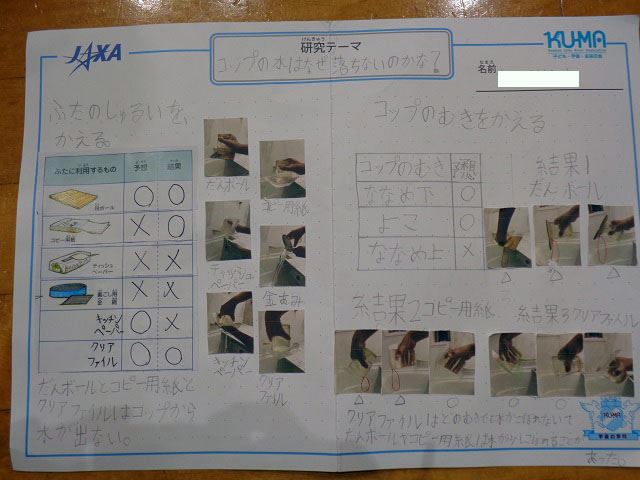 JAXA
けんきゅう
研究テーマ
コップの水はなぜ落ちないのかな?
KU-MA
なまえ
名前
ふたのしゅるいを、
かえる。
ふたに利用するもの 予想 結果
段ボール ○ ○
コピー用紙 × ○
ティッシュ
ペーパー × ×
× ×
キッチン
ペーパー ○ ×
クリア
ファイル ○ ○
だんボールとコピー用紙と
クリアファイルはコップから
水が出ない。
だんボール
コピー用紙
ティッシュ
ペーパー
金あみ
キッチン
ペーパー
クリア
ファイル
コップのむきをかえる
コップのむき 予想
ななめ下 ○
よこ ○
ななめ上 ×
結果1
だんボール
△ △ △
結果2コピー用紙
結果3クリアファイル
△ △ ○ ○ ○ ○
クリアファイルはどのむきでも水がこぼれないで
だんボールやコピー用紙は水が少しこぼれることが
あった。
KUMA
宇宙の学校